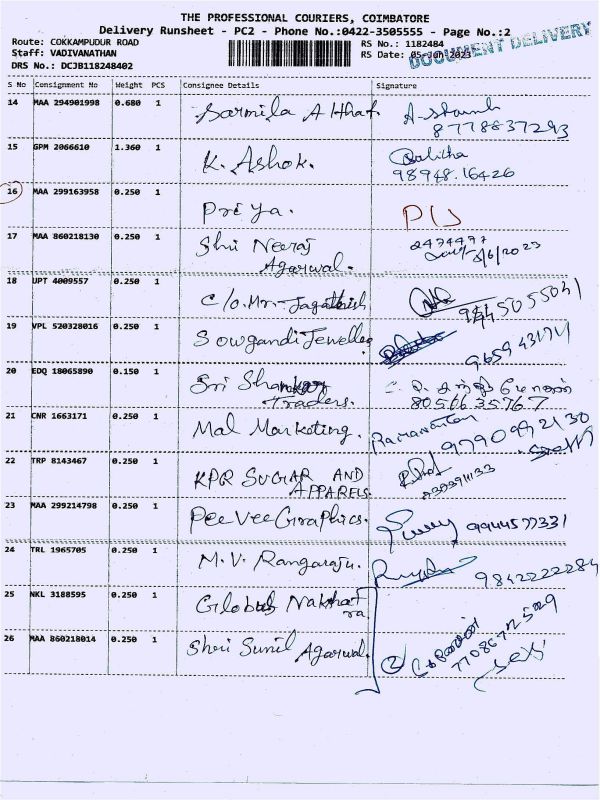 THE PROFESSIONAL COURIERS, COIMBATORE
Delivery Runsheet - PC2 - Phone No.:0422-3505555 - Page No.:2
Route: COKKAMPUDUR ROAD RS No.: 1182484
Staff: VADIVANATHAN RS Date: 05-Jun-2023
DOCUMENT DELIVERY
DRS No.: DCJB118248402
S No Consignment No Weight PCS Consignee Details Signature
14 MAA 294901998 0.680 1 Sarmila A
8778837293
15 GPM 2066610 1.360 1 K. Ashok. Lalitha
98948.16426
16 MAA 299163958 0.250 1 Priya.
17 MAA 860218130 0.250 1 Shri Neeraj
Agarwal. 2474477
18 UPT 4009557 0.250 1 C/o. Mr. Jagathish 9445055041
19 VPL 520328016 0.250 1 Sowgandi Jewelleg
20 EDQ 18065890 0.150 1 Sri Shankar
Traders. 8056635767
21 CNR 1663171 0.250 1 Mal Marketing. Ramanathan 9790992130
22 TRP 8143467 0.250 1 KPR SUGAR AND
APPARELS.
23 MAA 299214798 0.250 1 Pee Vee Graphics. 9944577331
24 TRL 1965705 0.250 1 M.V. Rangaraju. 9842222284
25 NKL 3188595 0.250 1 Globus Nakshatra
26 MAA 860218014 0.250 1 Shri Sunil Agarwal. 2